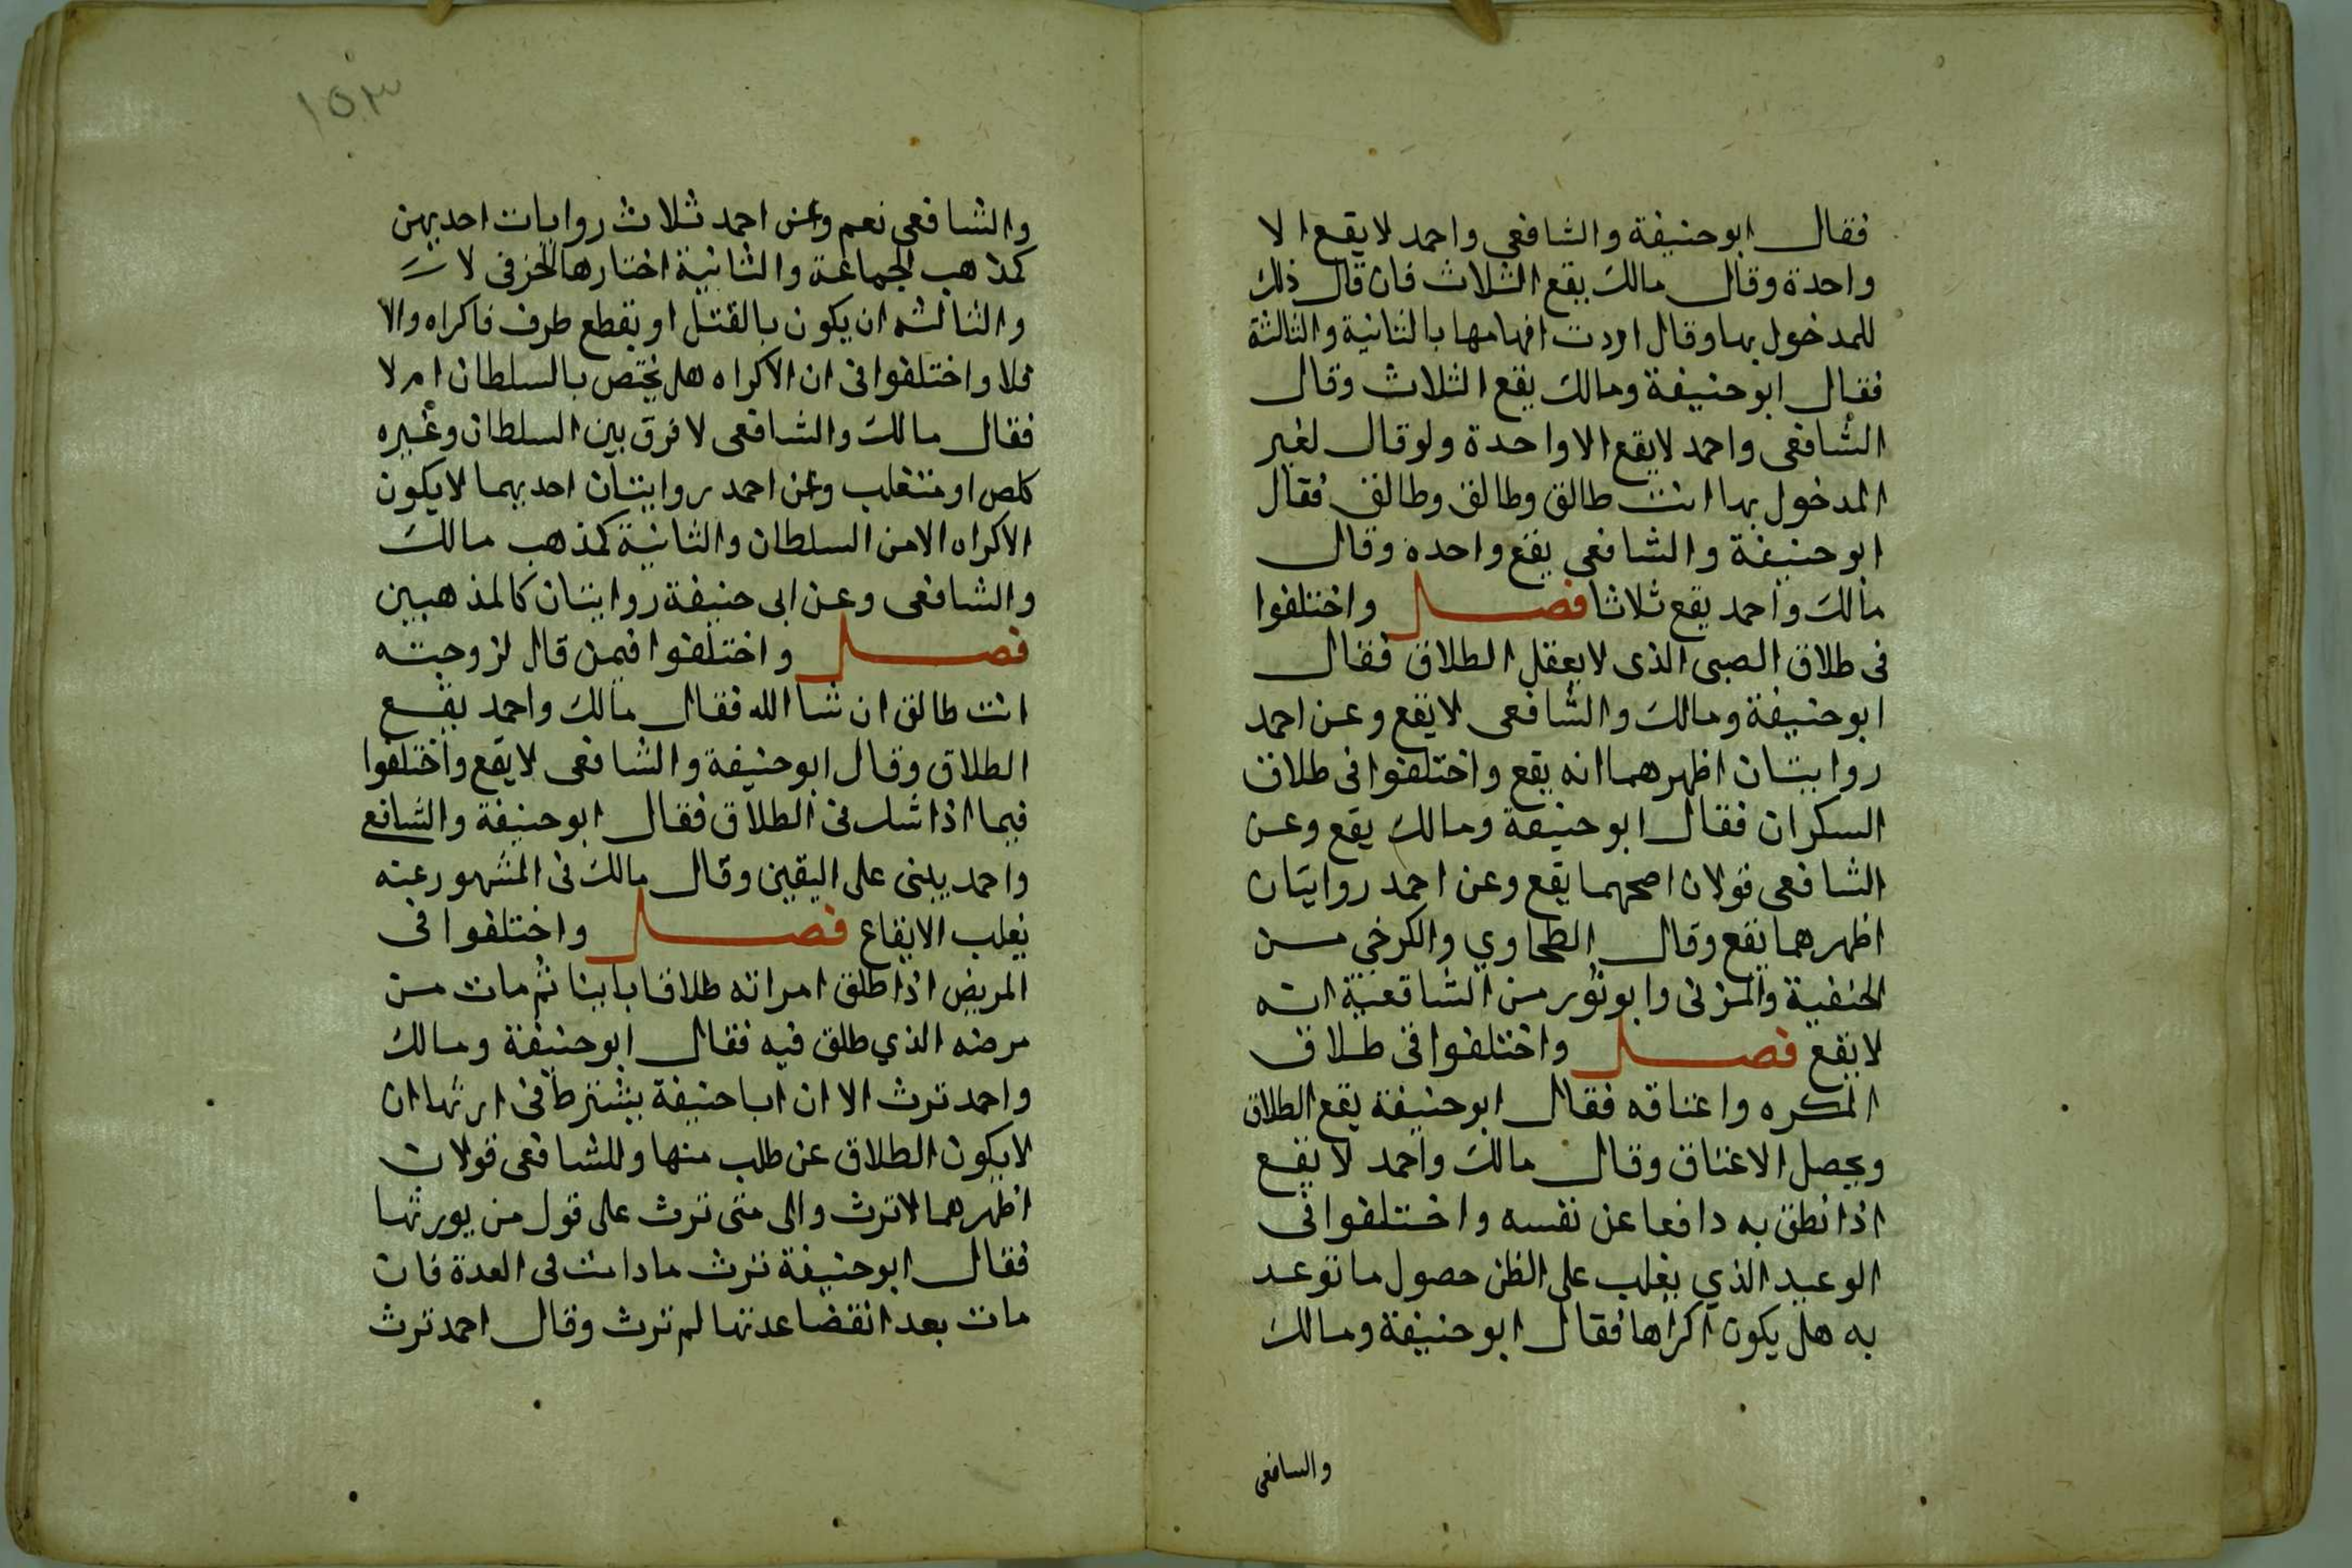 فقال ابو حنيفة والشافعي واحمد لا يقع الا
واحدة وقال مالك يقع الثلاث فان قال ذلك
للمدخول بها وقال اردت افهامها بالثانية والثالثة
فقال ابو حنيفة ومالك يقع الثلاث وقال
الشافعى واحمد لا يقع الا واحدة ولو قال لغير
المدخول بها انت طالق وطالق وطالق فقال
ابو حنيفة والشافعى يقع واحدة وقال
مالك واحمد يقع ثلاثا فصل واختلفوا
فى طلاق الصبى الذى لا يعقل الطلاق فقال
ابو حنيفة ومالك والشافعى لا يقع وعن احمد
روايتان اظهرهما انه يقع واختلفوا فى طلاق
السكران فقال ابو حنيفة ومالك يقع وعن
الشافعى قولان اصحهما يقع وعن احمد روايتان
اظهرهما يقع وقال الطحاوي والكرخى من
الحنفية والمزنى وابو ثور من الشافعية انه
لا يقع فصل واختلفوا فى طلاق
المكره واعتاقه فقال ابو حنيفة يقع الطلاق
ويحصل الاعتاق وقال مالك واحمد لا يقع
اذا نطق به دافعا عن نفسه واختلفوا فى
الوعيد الذي يغلب على الظن حصول ما توعد
به هل يكون اكراها فقال ابو حنيفة ومالك
والسافعى
١٥٣
والشافعى نعم وعن احمد ثلاث روايات احديهن
كمذهب الجماعة والثانية اختارها الخرقى لا
والثالثه ان يكون بالقتل او بقطع طرف فاكراه والا
فلا واختلفوا فى ان الاكراه هل يختص بالسلطان ام لا
فقال مالك والشافعى لا فرق بين السلطان وغيره
كلص او متغلب وعن احمد روايتان احديهما لا يكون
الاكراه الا من السلطان والثانية كمذهب مالك
والشافعى وعن ابى حنيفة روايتان كالمذهبين
فصل واختلفوا فيمن قال لزوجته
انت طالق ان شا الله فقال مالك واحمد يقع
الطلاق وقال ابو حنيفة والشافعى لا يقع واختلفوا
فيما اذا شك فى الطلاق فقال ابو حنيفة والشافع
واحمد يبنى على اليقين وقال مالك فى المشهور عنه
يغلب الايقاع فصل واختلفوا فى
المريض اذا طلق امراته طلاقا باينا ثم مات من
مرضه الذي طلق فيه فقال ابو حنيفة ومالك
واحمد ترث الا ان ابا حنيفة يشترط فى ارثها ان
لا يكون الطلاق عن طلب منها وللشافعى قولان
اظهرهما لا ترث والى متى ترث على قول من يورثها
فقال ابو حنيفة ترث ما دامت فى العدة فان
مات بعد انقضا عدتها لم ترث وقال احمد ترث